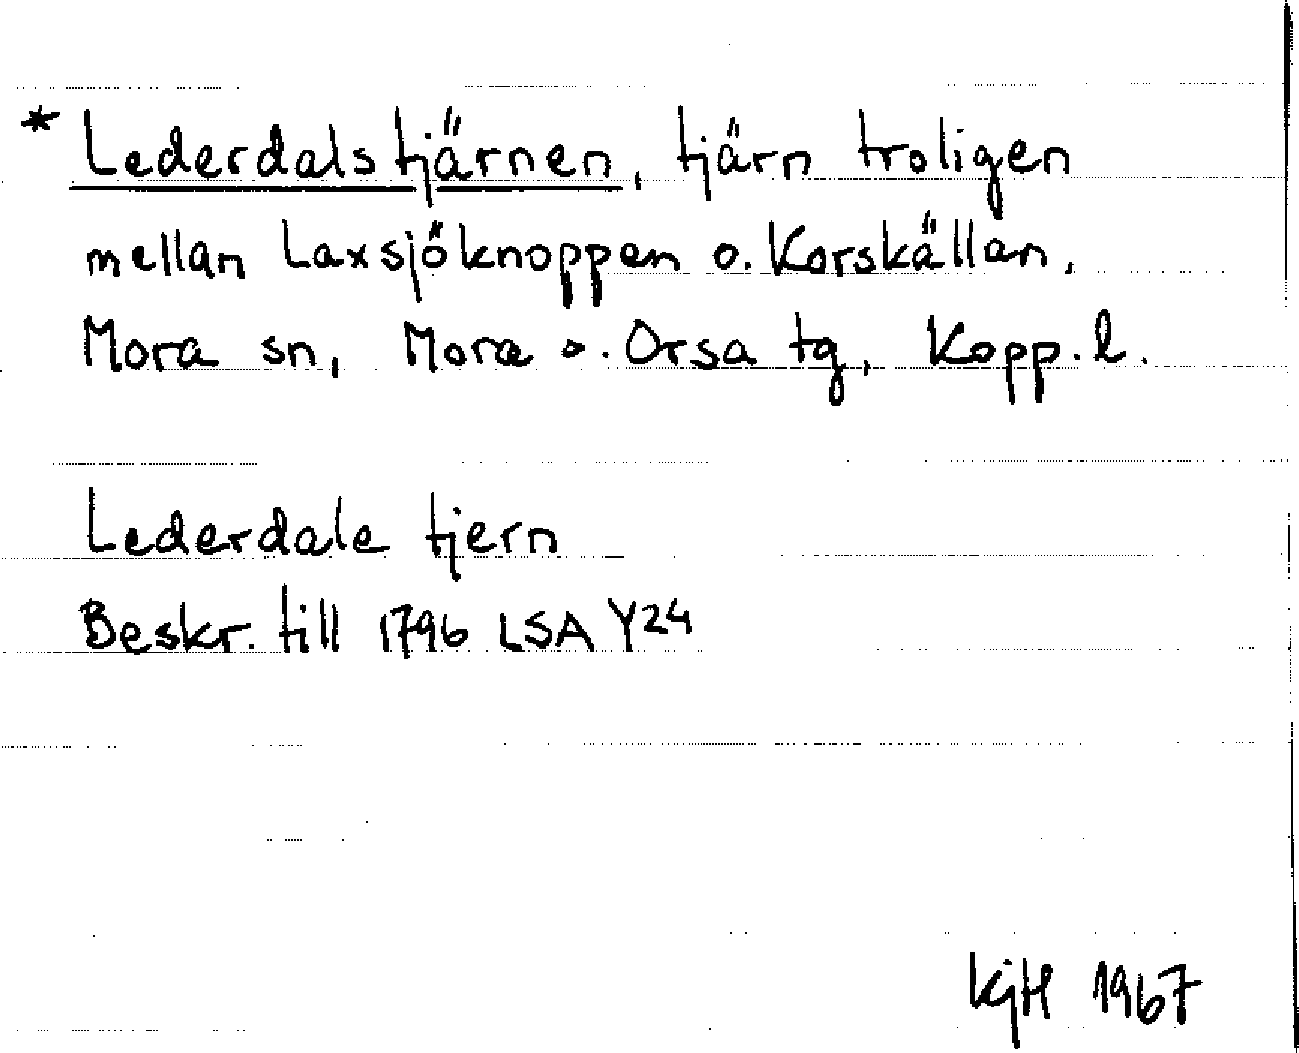 * Lederdalstjärnen, tjärn troligen
mellan Laxsjöknoppen o. Korskällan,
Mora sn, Mora o. Orsa tg, Kopp. l.
Lederdale tjern
Beskr. till 1796 LSA Y24
KGH 1967